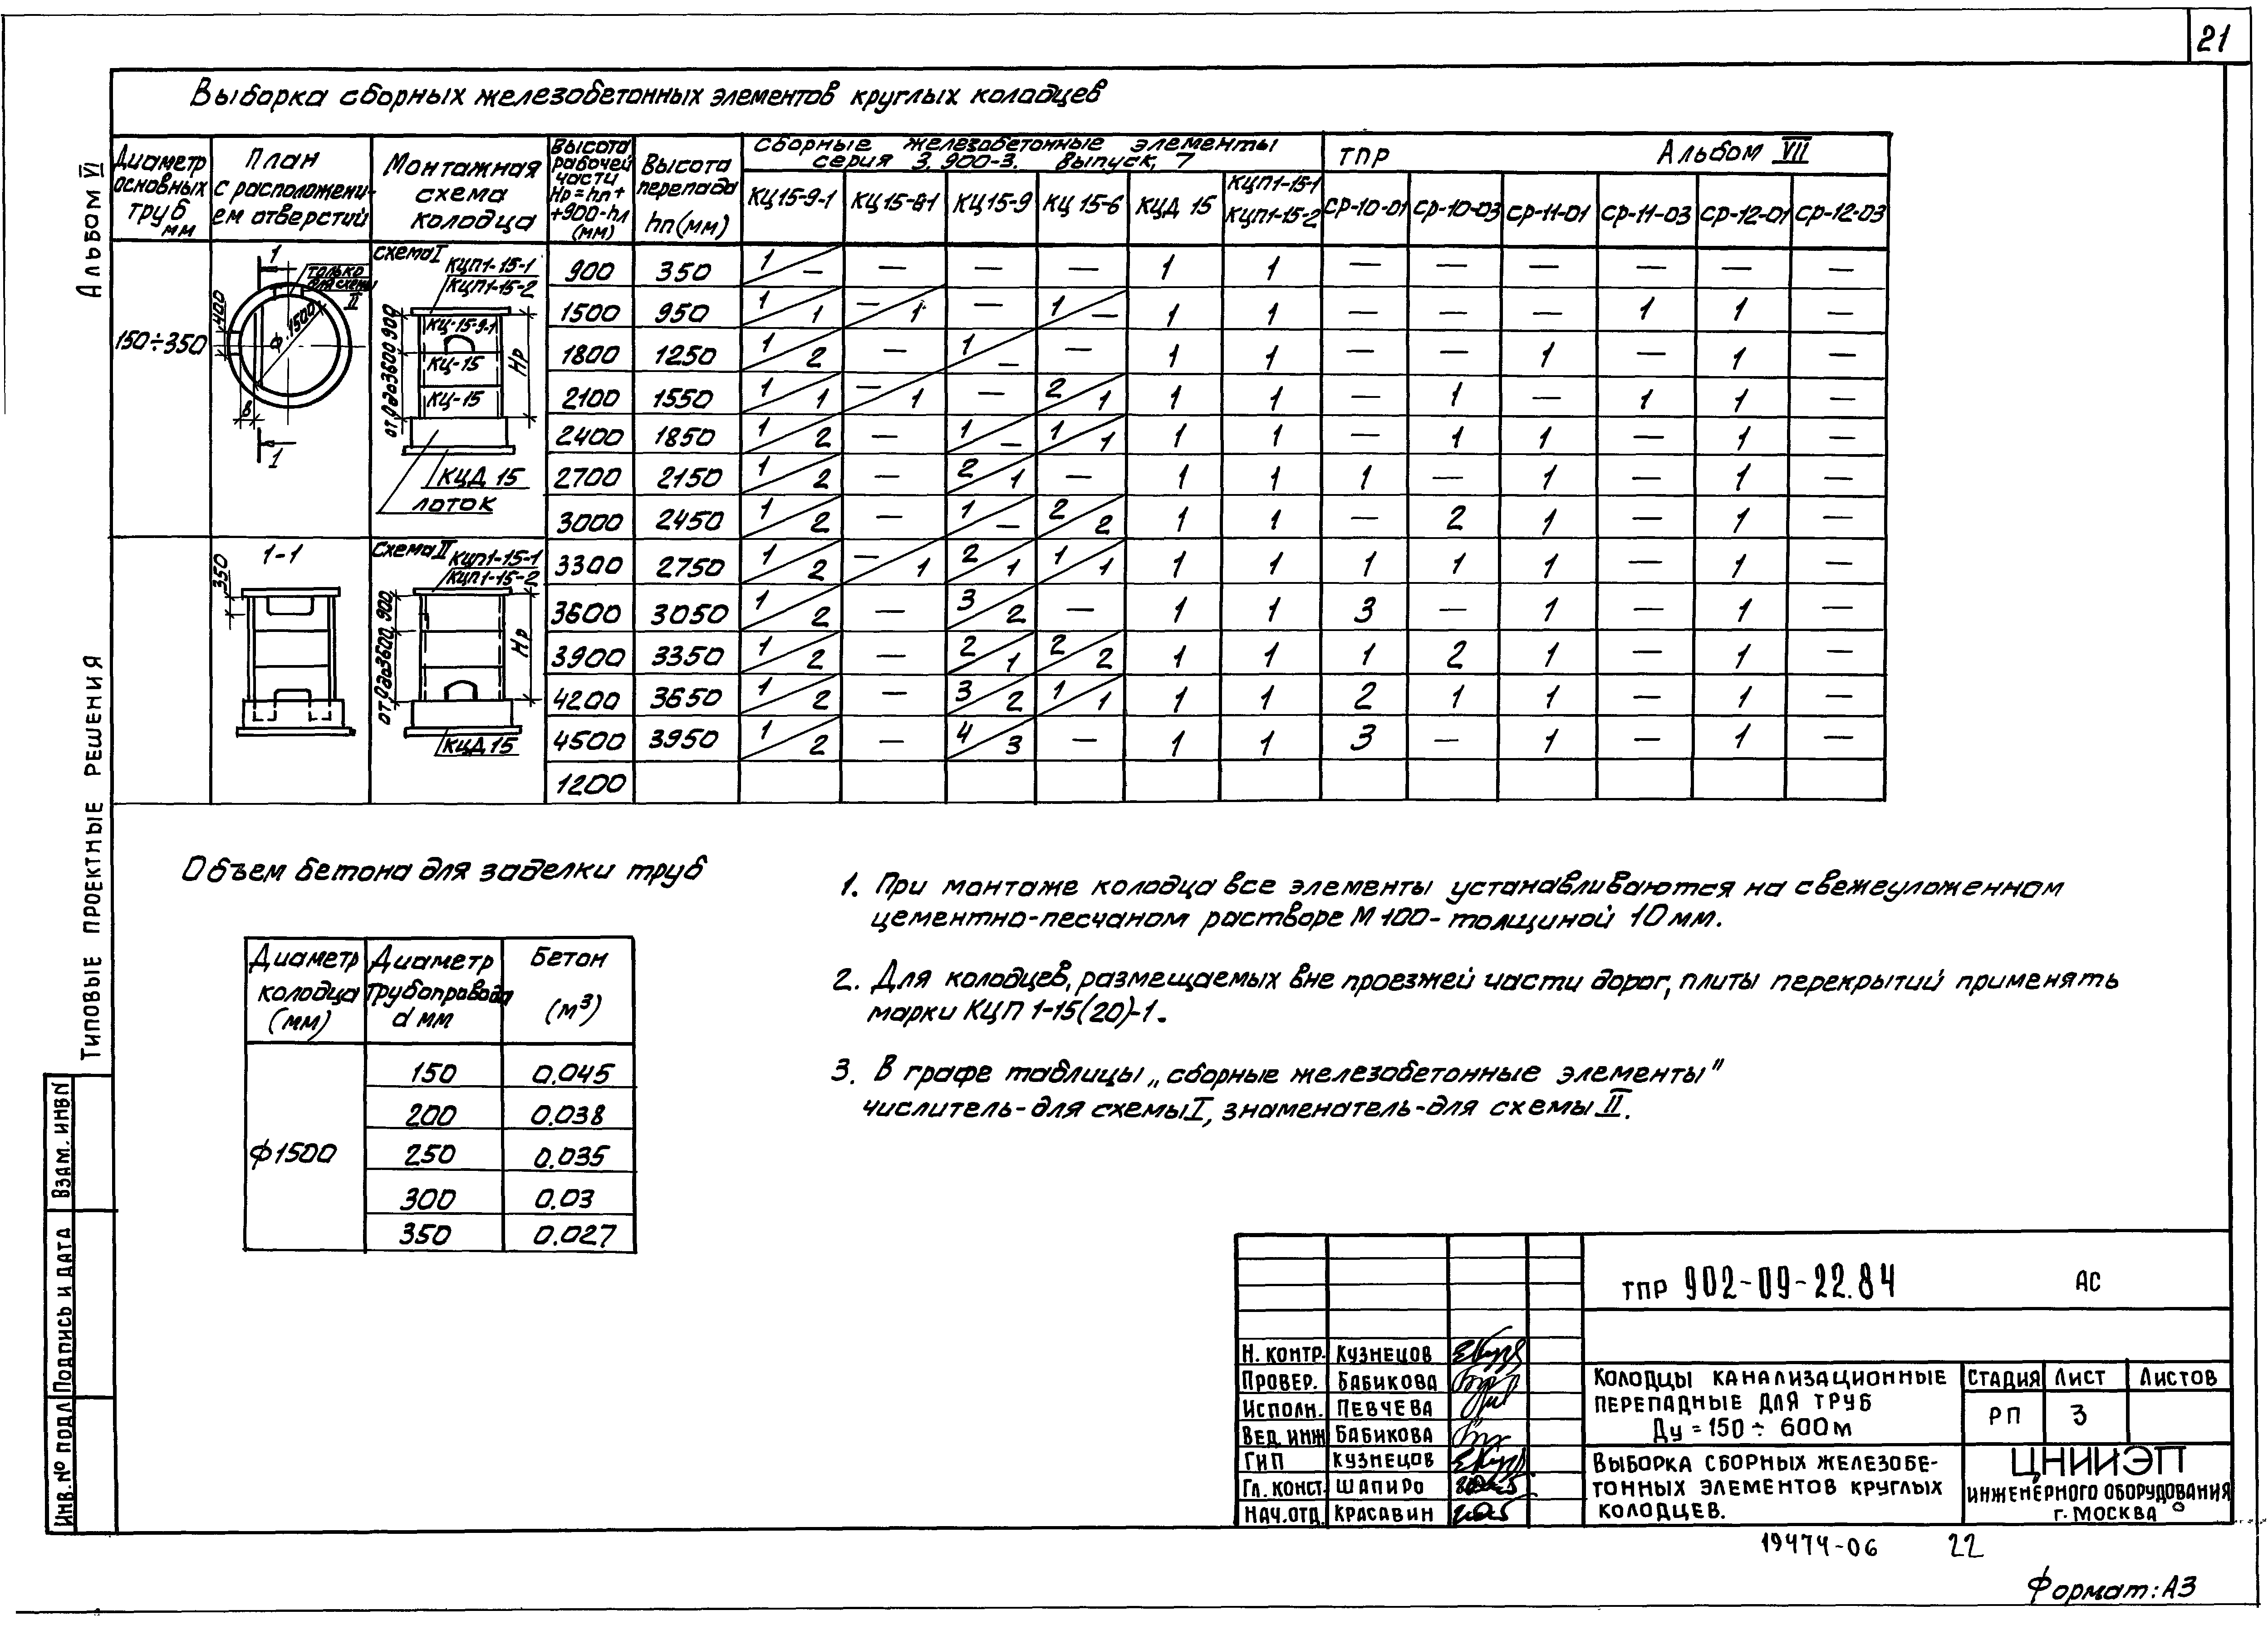 21
Выборка сборных железобетонных элементов круглых колодцев
Альбом VI
Типовые проектные решения
Диаметр основных труб мм
План с расположени-ем отверстий
Монтажная схема колодца
Высота рабочей части Hр=hп+ +900-hл (мм)
Высота перепада hп(мм)
Сборные железобетонные элементы
серия 3.900-3. Выпуск, 7
ТПР Альбом VII
КЦ15-9-1 КЦ15-9-1 КЦ15-9 КЦ 15-6 КЦД 15 КЦП1-15-1 КЦП1-15-2 СР-10-01 СР-10-03 СР-11-01 СР-11-03 СР-12-01 СР-12-03
150÷350
1
только для схемы II
400
1500
в
1
Схема I
КЦП1-15-1
КЦП1-15-2
КЦ-15-9-1
КЦ-15
КЦ-15
900
от 0 до 3600
Hр
КЦД 15
лоток
1-1
350
Схема II
КЦП1-15-1
КЦП1-15-2
900
от 0 до 3600
Hр
КЦД 15
900 350 1/— — — — 1 1 — — — — — —
1500 950 1/1 —/1 — 1/— 1 1 — — — 1 1 —
1800 1250 1/2 — 1/— — 1 1 — — 1 — 1 —
2100 1550 1/1 —/1 — 2/1 1 1 — 1 — 1 1 —
2400 1850 1/2 — 1/— 1/1 1 1 — 1 1 — 1 —
2700 2150 1/2 — 2/1 — 1 1 1 — 1 — 1 —
3000 2450 1/2 — 1/— 2/2 1 1 — 2 1 — 1 —
3300 2750 1/2 —/1 2/1 1/1 1 1 1 1 1 — 1 —
3600 3050 1/2 — 3/2 — 1 1 3 — 1 — 1 —
3900 3350 1/2 — 2/1 2/2 1 1 1 2 1 — 1 —
4200 3650 1/2 — 3/2 1/1 1 1 2 1 1 — 1 —
4500 3950 1/2 — 4/3 — 1 1 3 — 1 — 1 —
1200
Объем бетона для заделки труб
Диаметр колодца (мм)
Диаметр трубопровода d мм
Бетон (м³)
ф1500
150 0.045
200 0.038
250 0.035
300 0.03
350 0.027
1. При монтаже колодца все элементы устанавливаются на свежеуложенном
цементно-песчаном растворе М 100- толщиной 10 мм.
2. Для колодцев, размещаемых вне проезжей части дорог, плиты перекрытий применять
марки КЦП 1-15(20)-1.
3. В графе таблицы „сборные железобетонные элементы"
числитель-для схемы I, знаменатель-для схемы II.
Взам. инв N
Подпись и дата
Инв. № подл
ТПР 902-09-22.84 АС
Н. контр. Кузнецов
Провер. Бабикова
Исполн. Певчева
Вед. инж Бабикова
ГИП Кузнецов
Гл. конст. Шапиро
Нач. отд. Красавин
Колодцы канализационные
перепадные для труб
Ду = 150 ÷ 600 м
Стадия Лист Листов
РП 3
Выборка сборных железобе-
тонных элементов круглых
колодцев.
ЦНИИЭП
инженерного оборудования
г. Москва
19474-06 22
Формат: А3